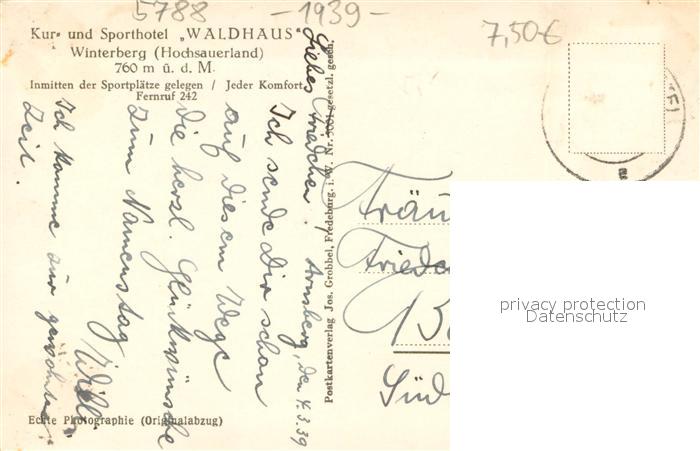 5788
-1939-
7,50€
Kur- und Sporthotel „WALDHAUS"
Winterberg (Hochsauerland)
760 m ü. d. M.
Inmitten der Sportplätze gelegen / Jeder Komfort
Fernruf 242
Arnsberg, den 4.3.39
Liebes Friedchen!
Ich sende Dir schon
auf diesem Wege
die herzl. Glückwünsche
zum Namenstag
Willi
Ich komme zur gewohnten
Zeit.
Echte Photographie (Originalabzug)
Postkartenverlag Jos. Grobbel, Fredeburg i. W. Nr. gesetzl. gesch.
Fräu
Friedc
Süd
privacy protection
Datenschutz